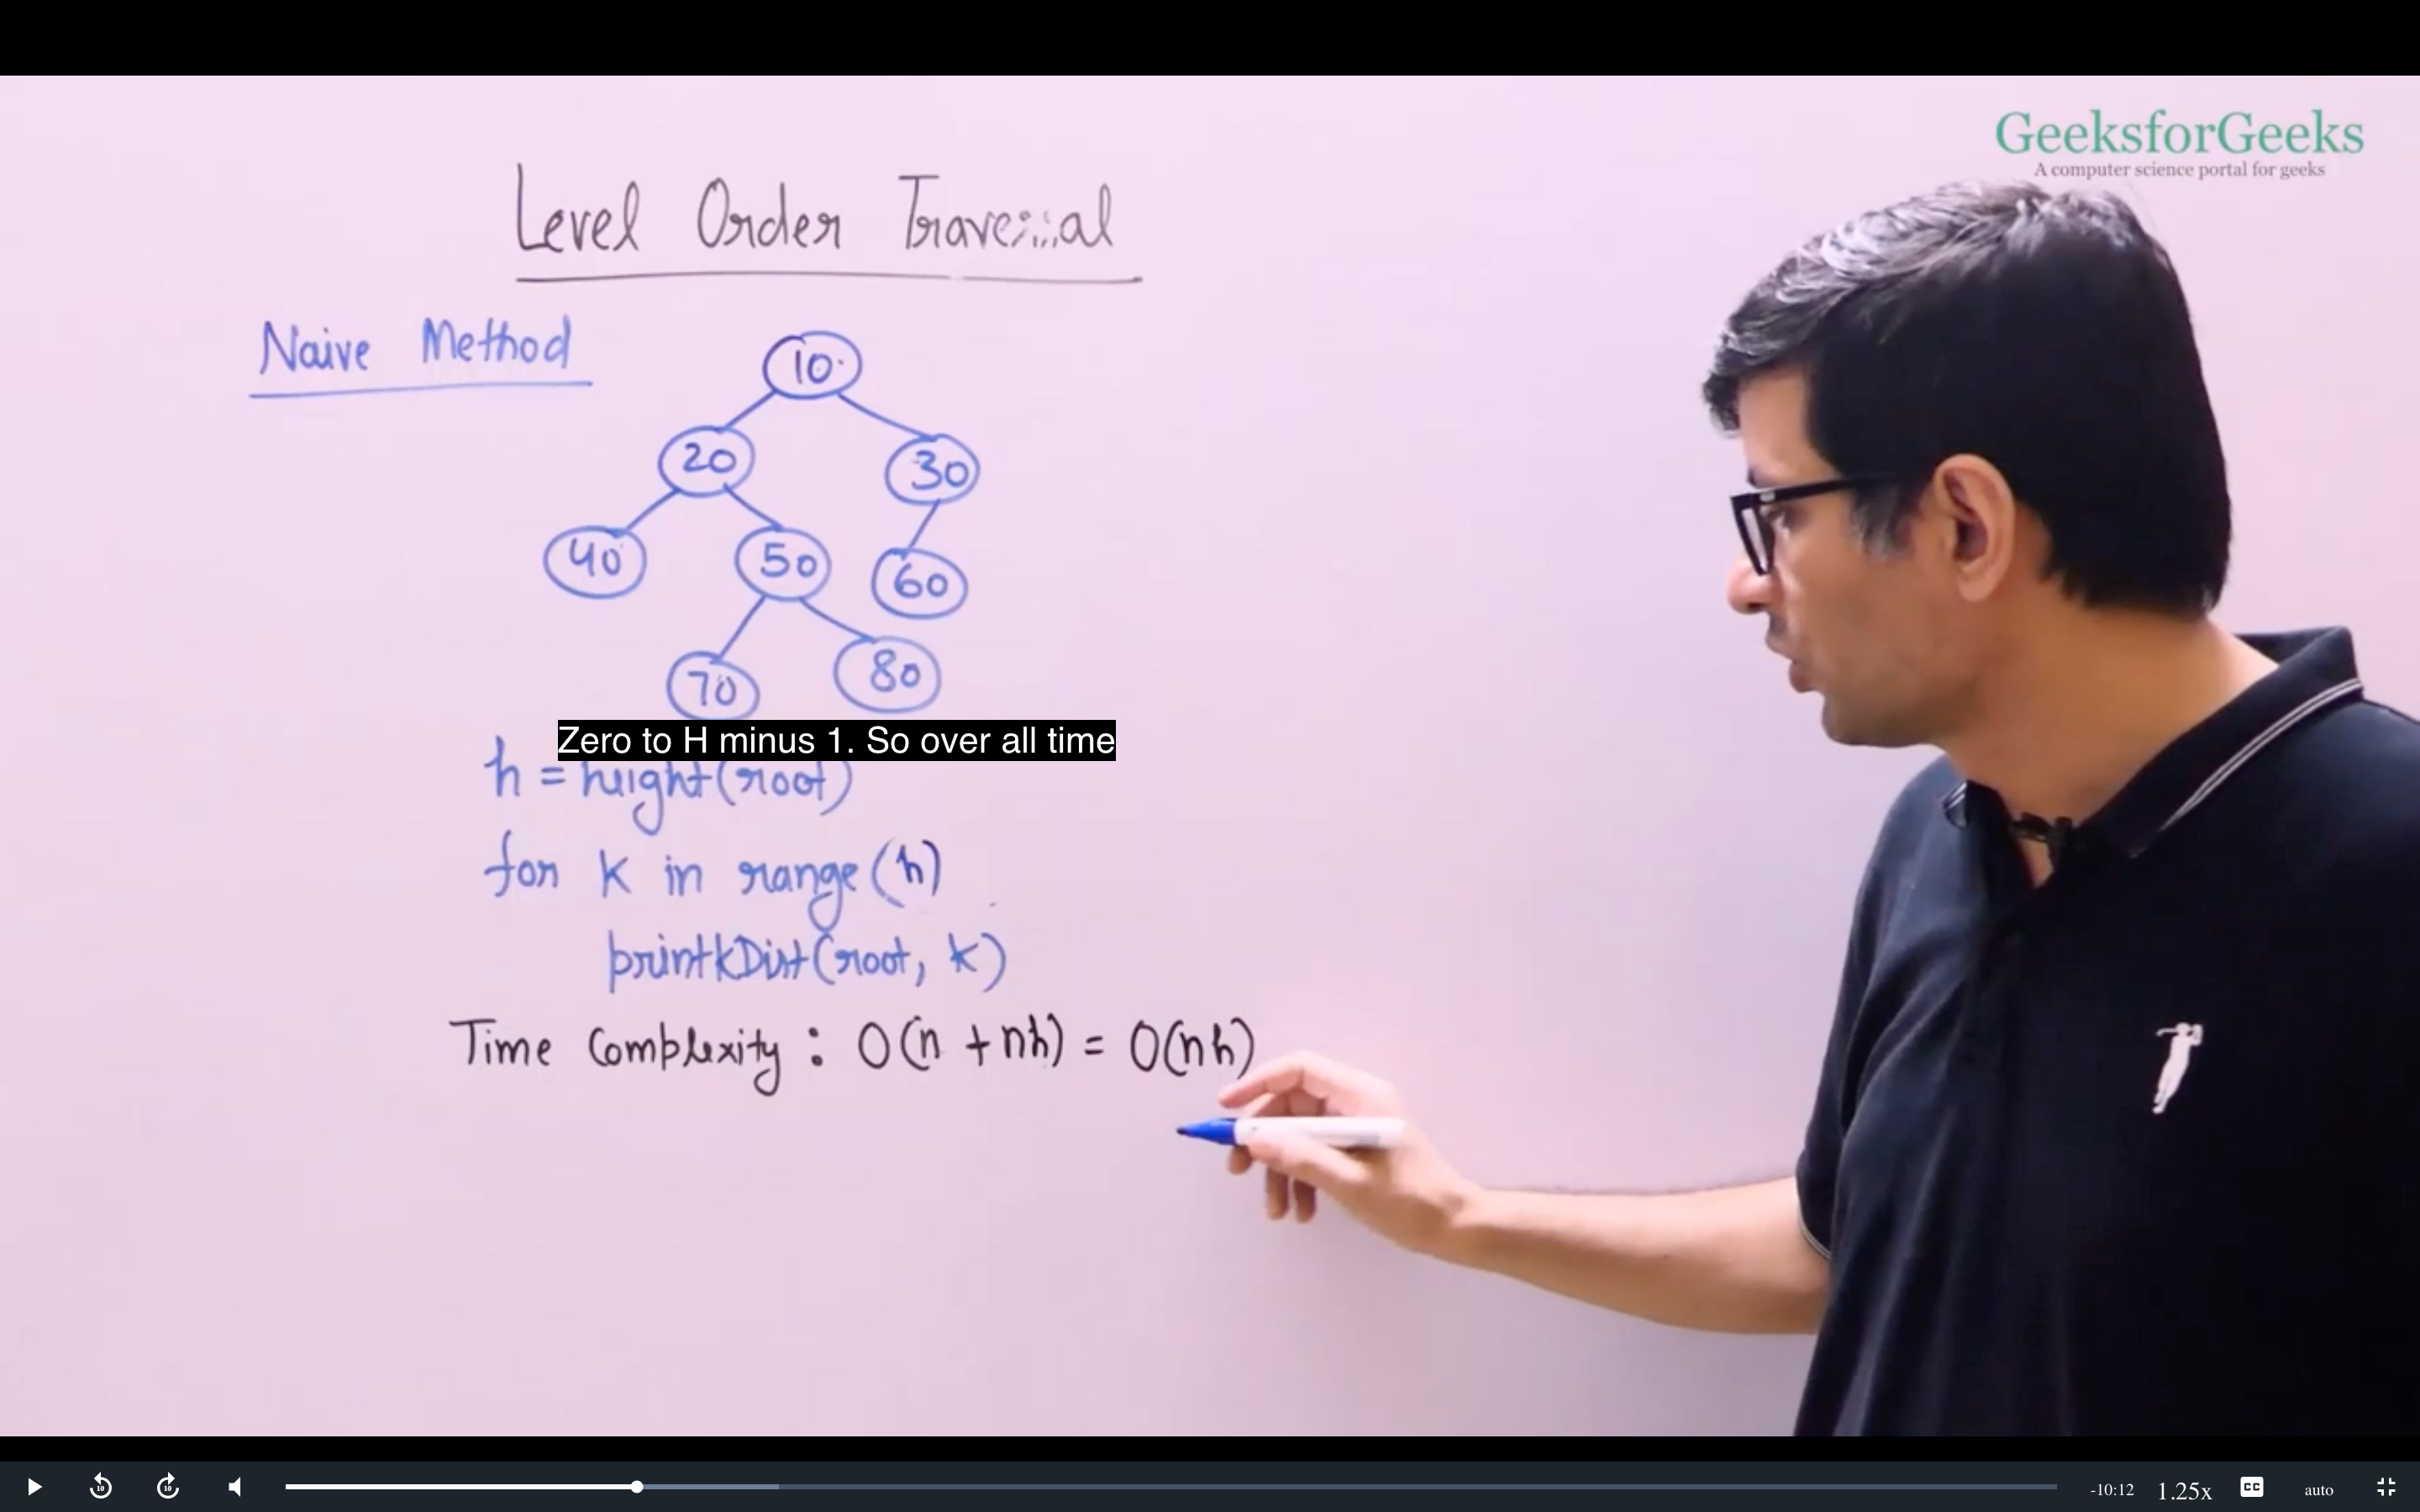 GeeksforGeeks
A computer science portal for geeks
Level Order Traversal
Naive Method
10
20 30
40 50 60
70 80
Zero to H minus 1. So over all time
h = height(root)
for k in range(h)
printkDist(root, k)
Time Complexity : O(n + nh) = O(nh)
10 10 -10:12 1.25x CC auto